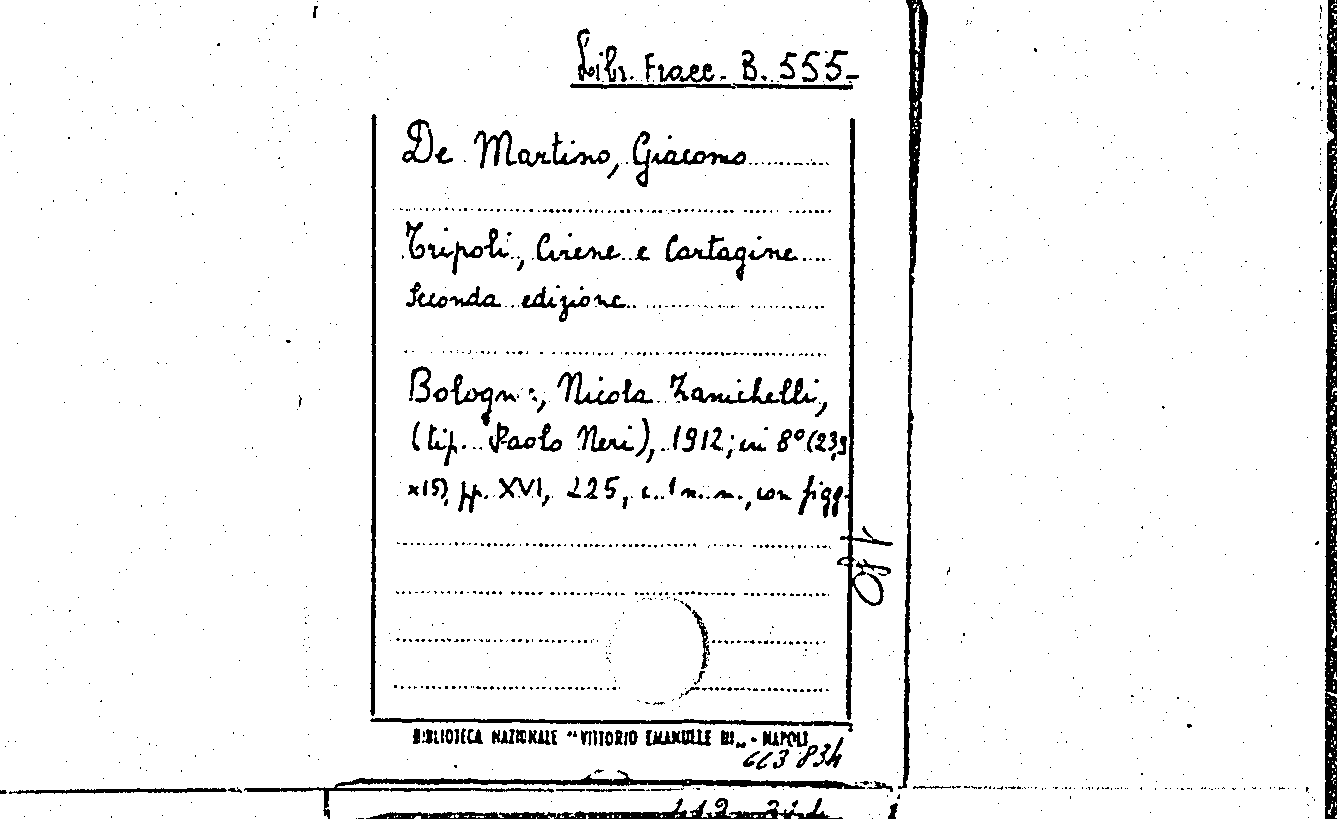 Libr. Fracc. B. 555-
De Martino, Giacomo
Tripoli, Cirene e Cartagine
Seconda edizione
Bologna, Nicola Zanichelli,
(tip. Paolo Neri), 1912; in 8° (23,5
x15), pp. XVI, 225, c. 1 n. n., con figg.
BIBLIOTECA NAZIONALE "VITTORIO EMANUELE III„ - NAPOLI
663834